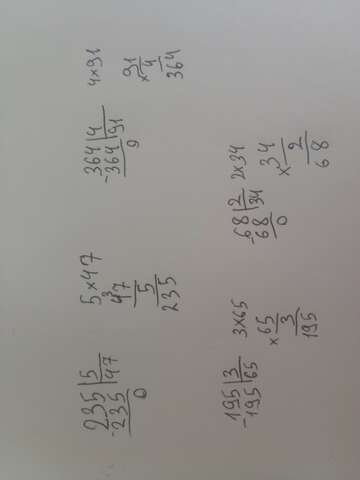 235 | 5
-235 | 47
0
5 × 47
3
47
5
235
364 | 4
-364 | 91
0
4 × 91
91
× 4
364
195 | 3
-195 | 65
3 × 65
× 65
3
195
-68 | 2
68 | 34
0
2 × 34
× 34
2
68